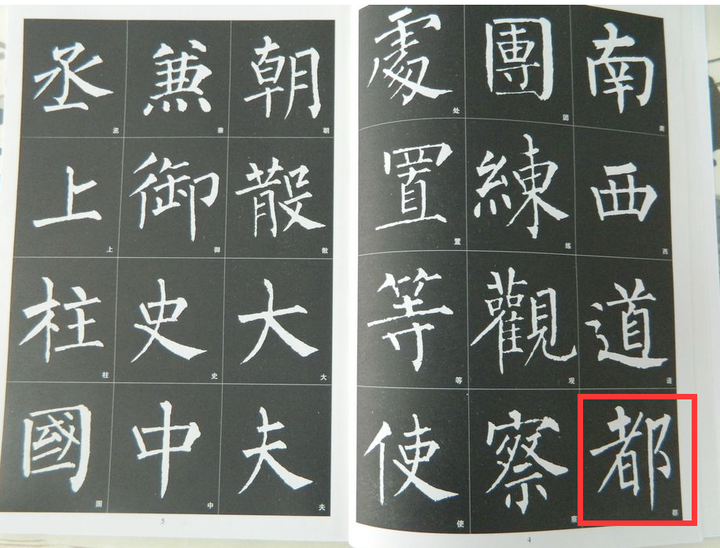 南西道都
團練觀察
處置等使
4
朝散大夫
兼御史中
丞上柱國
5